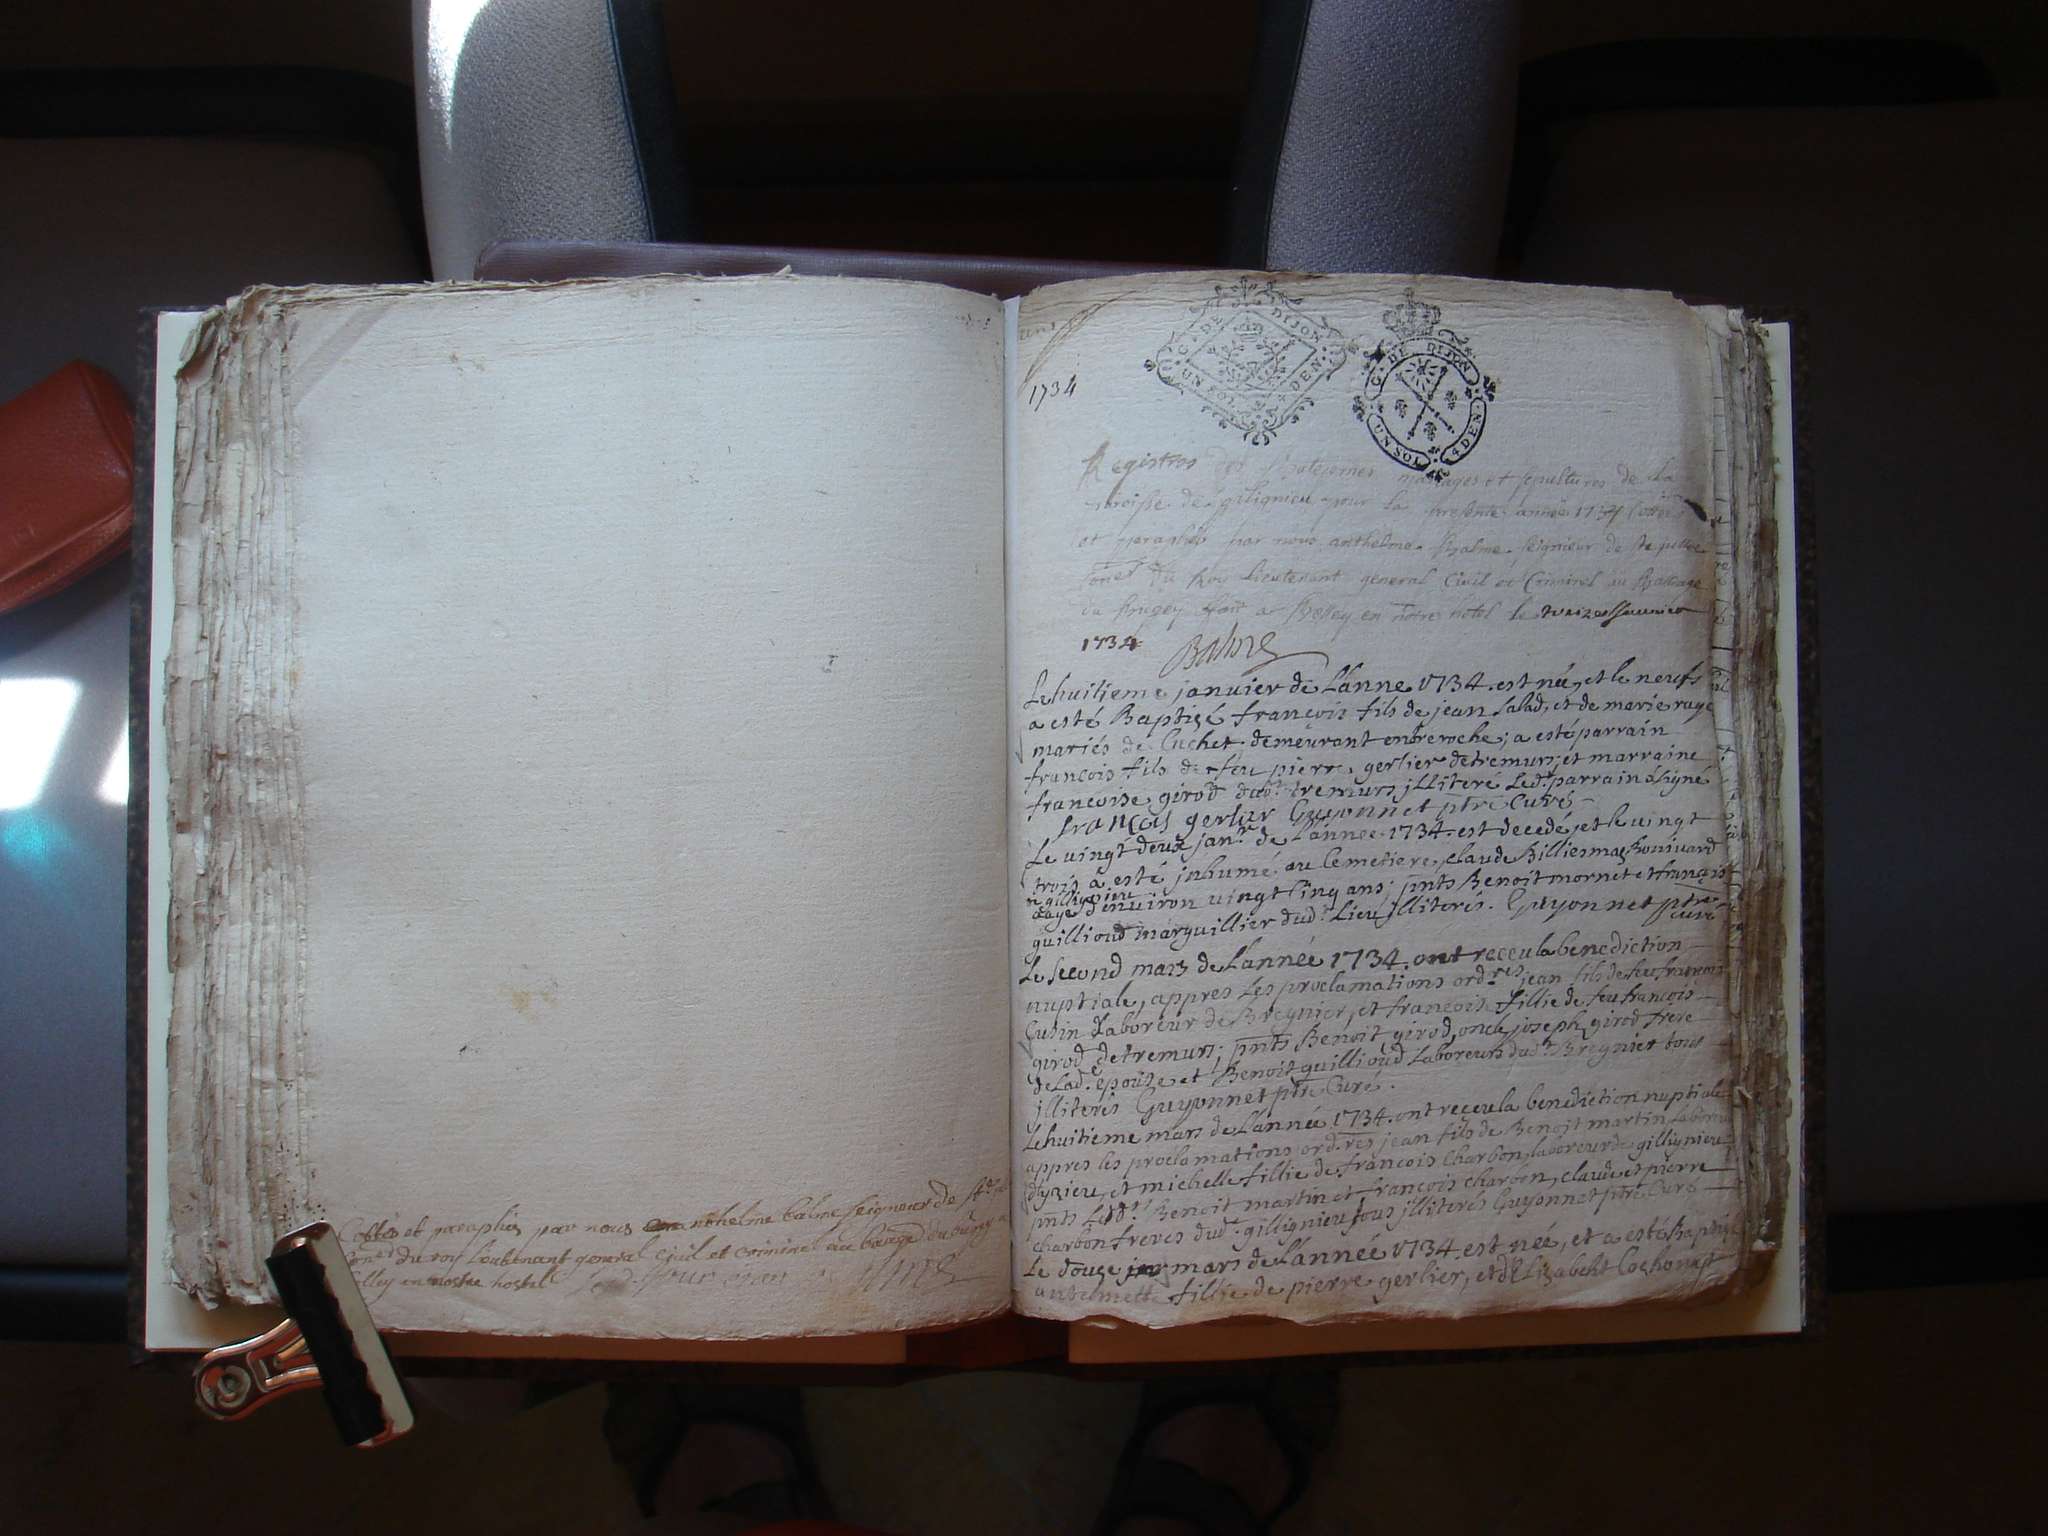 Cottés et paraphés par nous anthelme balme seigneur de Ste
Coner du roy Lieutenant general Civil et Criminel au baage du bugey a
belley en nostre hostel
1734
G. DE DIJON
UN SOL 4 DEN.
G. DE DIJON
UN SOL 4 DEN.
Registres des Batesmes mariages et sepultures de La
paroisse de gilignieu pour la presente année 1734 Cottés
et paraphés par nous anthelme Balme seigneur de Ste julie
Coner du Roy Lieutenant general Civil et Criminel au Balliage
du Bugey fait a Belley en notre hotel le treize Janvier
1734 Balme
Le huitieme janvier de L'anne 1734. est né, et le neufs
a esté Baptisé françois fils de jean Salad, et de marie ruge
mariés de Cuchet demeurant entreroche; a esté parrain
françois fils de feu pierre gerlier de tremurs; et marraine
françoise girod dud.t tremurs jlliteré Led.t parrain a signé
françois gerlier Guyonnet ptre Curé
Le vingt deux jan.r de L'année 1734. est decedé, et le vingt
trois a esté jnhumé au Cemetiere, claude Billiesmaz Bonivard
de gillignieu
aagé d'environ vingt Cinq ans; pnts Benoit mornet et françois
guilliond marguillier dud.t Lieu jlliterés. Guyonnet ptre
curé
Le second mars de L'année 1734. ont receu la benediction
nuptiale, appres Les proclamations ord.res jean fils de feu françois
Cusin Laboreur de Bregnier, et françoise fillie de feu françois
girod de tremurs; pnts Benoit girod, oncle, joseph girod frere
de Lad. epouse et Benoit guilliond Laboreurs dud.t Bregnier tous
jlliterés Guyonnet ptre Curé.
Le huitieme mars de L'année 1734. ont receu la benediction nuptiale
appres les proclamations ord.res jean fils de Benoit martin Laboreur
d'yzieu, et michelle fillie de françois Charbon, laboreur de gillignieu
pnts Led.t Benoit martin et françois charbon, claude et pierre
charbon freres dud.t gillignieu tous jlliterés Guyonnet ptre Curé
Le douze mars de L'année 1734. est née, et a esté Baptisée
anthelmette fillie de pierre gerlier, et d'Elizabeht Cochonat